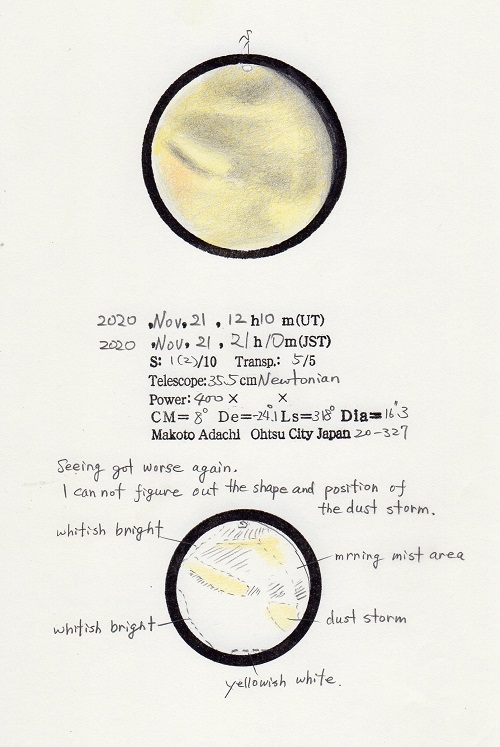 S
2020 .Nov. 21 , 12 h10 m(UT)
2020 .Nov. 21 , 21 h 10m(JST)
S: 1(2)/10 Transp.: 5/5
Telescope: 35.5cm Newtonian
Power: 400 × ×
CM= 8° De=-24.1° Ls=318° Dia=16".3
Makoto Adachi Ohtsu City Japan 20-327
Seeing got worse again.
I can not figure out the shape and position of
the dust storm.
S
whitish bright
mrning mist area
whitish bright
dust storm
yellowish white.